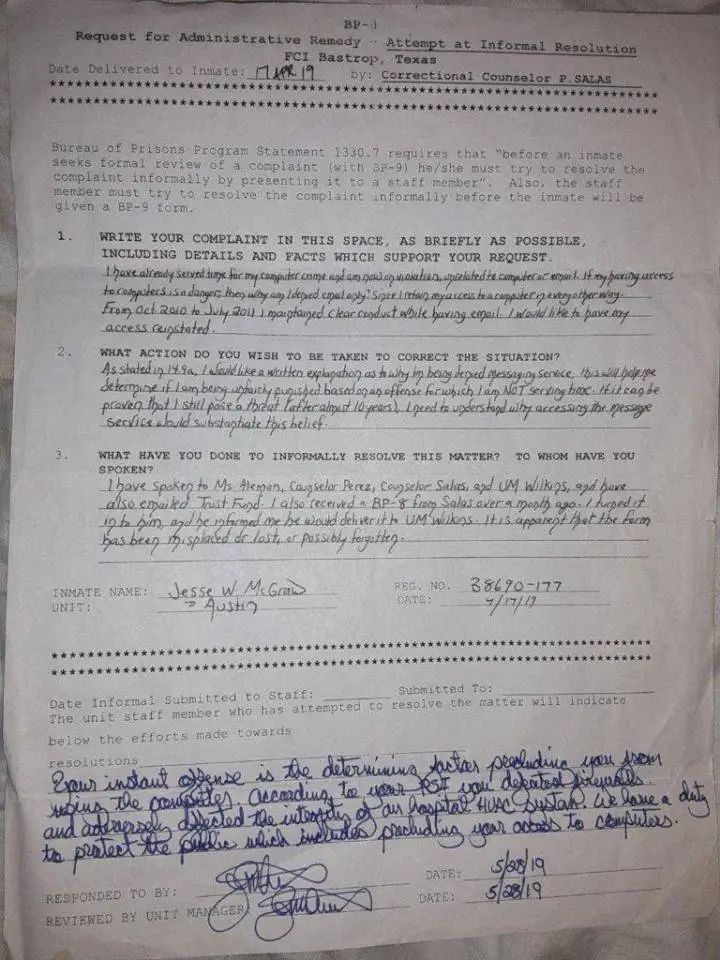 BP-
Request for Administrative Remedy - Attempt at Informal Resolution
FCI Bastrop, Texas
Date Delivered to Inmate: 17 APR 19 by: Correctional Counselor P.SALAS
********************************************************************
********************************************************************
Bureau of Prisons Program Statement 1330.7 requires that "before an inmate
seeks formal review of a complaint (with BP-9) he/she must try to resolve the
complaint informally by presenting it to a staff member". Also, the staff
member must try to resolve the complaint informally before the inmate will be
given a BP-9 form.
1. WRITE YOUR COMPLAINT IN THIS SPACE, AS BRIEFLY AS POSSIBLE,
INCLUDING DETAILS AND FACTS WHICH SUPPORT YOUR REQUEST.
I have already served time for my computer crime and am now on violation, unrelated to computer or email. If my having access
to computers is a danger, then why am I denied email only? Since I retain my access to a computer in every other way.
From Oct 2010 to July 2011 I maintained clear conduct while having email. I would like to have my
access reinstated.
2. WHAT ACTION DO YOU WISH TO BE TAKEN TO CORRECT THE SITUATION?
As stated in 14.9a, I would like a written explanation as to why I'm being denied messaging service, this will help me
determine if I am being unfairly punished based on an offense for which I am NOT serving time. If it can be
proven that I still pose a threat (after almost 10 years), I need to understand why accessing the message
service would substantiate this belief.
3. WHAT HAVE YOU DONE TO INFORMALLY RESOLVE THIS MATTER? TO WHOM HAVE YOU
SPOKEN?
I have spoken to Ms. Aleman, Counselor Perez, Counselor Salas, and UM Wilkins, and have
also emailed Trust Fund. I also received a BP-8 from Salas over a month ago. I turned it
in to him, and he informed me he would deliver it to UM Wilkins. It is apparent that the form
has been misplaced or lost, or possibly forgotten.
INMATE NAME: Jesse W. McGraw REG. NO. 38690-177
UNIT: Austin DATE: 4/17/19
********************************************************************
********************************************************************
Date Informal Submitted to Staff: Submitted To:
The unit staff member who has attempted to resolve the matter will indicate
below the efforts made towards
resolutions
Your instant offense is the determining factor precluding you from
using the computer. According to your PSI you defeated firewalls
and adversely affected the integrity of an hospital HVAC system. We have a duty
to protect the public which includes precluding your access to computers.
RESPONDED TO BY: DATE: 5/28/19
REVIEWED BY UNIT MANAGER: DATE: 5/28/19